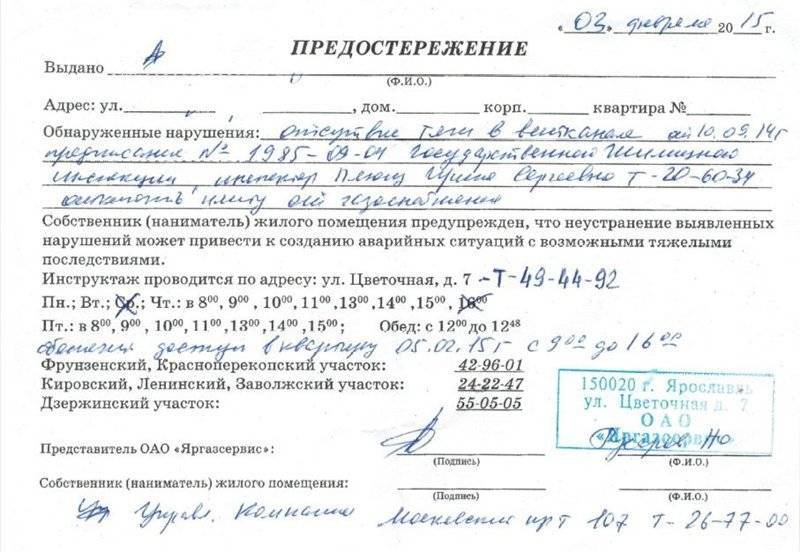 «03» февраля 2015 г.
ПРЕДОСТЕРЕЖЕНИЕ
Выдано
(Ф.И.О.)
Адрес: ул. , дом. корп. квартира №
Обнаруженные нарушения: отсутствие тяги в вентканале от 10.09.14г
предписания № 1985-09-04 Государственной Жилищной
инспекции, инспектор Ирина Сергеевна т-20-60-34
отключить плиту от газоснабжения
Собственник (наниматель) жилого помещения предупрежден, что неустранение выявленных
нарушений может привести к созданию аварийных ситуаций с возможными тяжелыми
последствиями.
Инструктаж проводится по адресу: ул. Цветочная, д. 7 -Т-49-44-92
Пн.; Вт.; Ср.; Чт.: в 8⁰⁰, 9⁰⁰, 10⁰⁰, 11⁰⁰, 13⁰⁰, 14⁰⁰, 15⁰⁰, 16⁰⁰
Пт.: в 8⁰⁰, 9⁰⁰, 10⁰⁰, 11⁰⁰, 13⁰⁰, 14⁰⁰, 15⁰⁰; Обед: с 12⁰⁰ до 12⁴⁸
доступ в квартиру 05.02.15г с 9⁰⁰ до 16⁰⁰
Фрунзенский, Красноперекопский участок: 42-96-01
Кировский, Ленинский, Заволжский участок: 24-22-47
Дзержинский участок: 55-05-05
150020 г. Ярославль
ул. Цветочная д. 7
ОАО
«Яргазсервис»
Представитель ОАО «Яргазсервис»:
(Подпись) (Ф.И.О.)
Собственник (наниматель) жилого помещения:
(Подпись) (Ф.И.О.)
Управл. Компания Московский пр-т 107 т-26-77-00